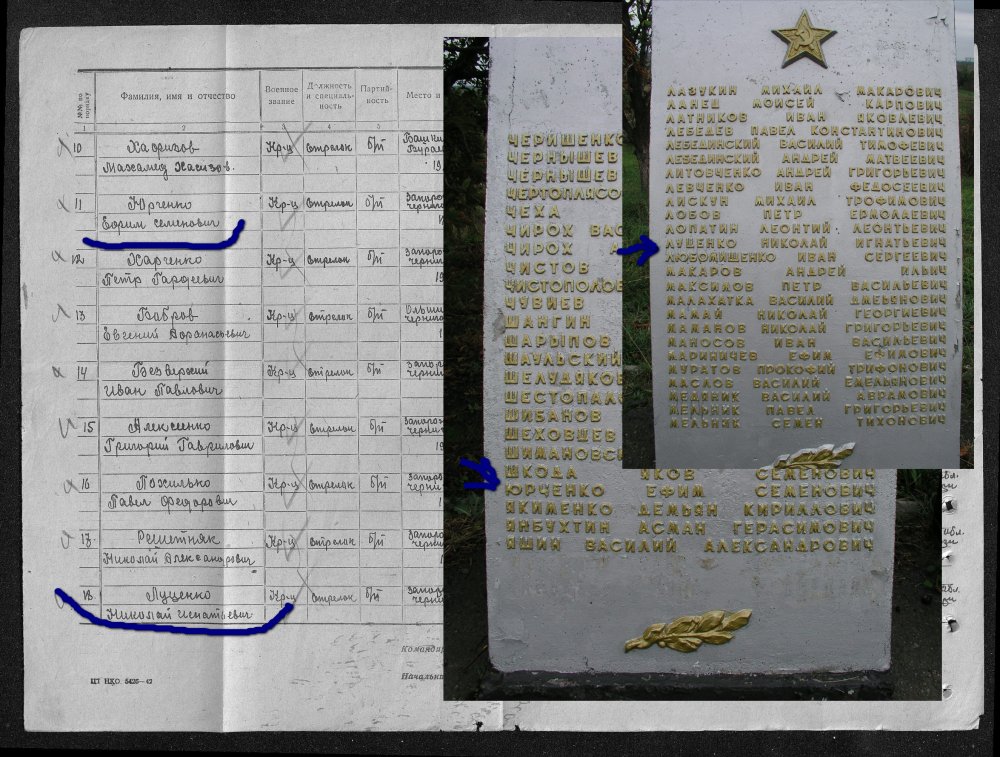 №№ по порядку
Фамилия, имя и отчество
Военное звание
Должность и специальность
Партийность
Место и
1 2 3 4 5
10 Хафизов Кр-ц Стрелок б/п
Махамед Хасизов.
11 Юрченко Кр-ц Стрелок б/п
Ефрим Семенович
12 Харченко Кр-ц Стрелок б/п
Петр Гордеевич
13 Бобров Кр-ц Стрелок б/п
Евгений Афанасьевич
14 Безверхий Кр-ц Стрелок б/п
Иван Павлович
15 Алексенко Кр-ц Стрелок б/п
Григорий Гаврилович
16 Похилько Кр-ц Стрелок б/п
Павел Федорович
17 Решетняк Кр-ц Стрелок б/п
Николай Александрович
18 Луценко Кр-ц Стрелок б/п
Николай Игнатьевич
Командир
Начальни
ЦТ НКО 5425—42
ЧЕРИШЕНКО
ЧЕРНЫШЕВ
ЧЕРНЫШЕВ
ЧЕРТОПЛЯСО
ЧЕХА
ЧИРОХ ВАС
ЧИРОХ А
ЧИСТОВ
ЧИСТОПОЛОВ
ЧУВИЕВ
ШАНГИН
ШАРЫПОВ
ШАУЛЬСКИЙ
ШЕЛУДЯКОВ
ШЕСТОПАЛ
ШИБАНОВ
ШЕХОВЦЕВ
ШИМАНОВС
ШКОДА ЯКОВ СЕМЕНОВИЧ
ЮРЧЕНКО ЕФИМ СЕМЕНОВИЧ
ЯКИМЕНКО ДЕМЬЯН КИРИЛЛОВИЧ
ЯНБУХТИН АСМАН ГЕРАСИМОВИЧ
ЯШИН ВАСИЛИЙ АЛЕКСАНДРОВИЧ
ЛАЗУКИН МИХАИЛ МАКАРОВИЧ
ЛАНЕЦ МОИСЕЙ КАРПОВИЧ
ЛАТНИКОВ ИВАН ЯКОВЛЕВИЧ
ЛЕБЕДЕВ ПАВЕЛ КОНСТАНТИНОВИЧ
ЛЕБЕДИНСКИЙ ВАСИЛИЙ ТИМОФЕВИЧ
ЛЕБЕДИНСКИЙ АНДРЕЙ МАТВЕЕВИЧ
ЛИТОВЧЕНКО АНДРЕЙ ГРИГОРЬЕВИЧ
ЛЕВЧЕНКО ИВАН ФЕДОСЕЕВИЧ
ЛИСКУН МИХАИЛ ТРОФИМОВИЧ
ЛОБОВ ПЕТР ЕРМОЛАЕВИЧ
ЛОПАТИН ЛЕОНТИЙ ЛЕОНТЬЕВИЧ
ЛУЦЕНКО НИКОЛАЙ ИГНАТЬЕВИЧ
ЛЮБОМИЩЕНКО ИВАН СЕРГЕЕВИЧ
МАКАРОВ АНДРЕЙ ИЛЬИЧ
МАКСИМОВ ПЕТР ВАСИЛЬЕВИЧ
МАЛАХАТКА ВАСИЛИЙ ДМЕЬЯНОВИЧ
МАМАЙ НИКОЛАЙ ГЕОРГИЕВИЧ
МАМАНОВ НИКОЛАЙ ГРИГОРЬЕВИЧ
МАНОСОВ ИВАН ВАСИЛЬЕВИЧ
МАРИНИЧЕВ ЕФИМ ЕФИМОВИЧ
МУРАТОВ ПРОКОФИЙ ТРИФОНОВИЧ
МАСЛОВ ВАСИЛИЙ ЕМЕЛЬЯНОВИЧ
МЕДЯНИК ВАСИЛИЙ АВРАМОВИЧ
МЕЛЬНИК ПАВЕЛ ГРИГОРЬЕВИЧ
МЕЛЬНИК СЕМЕН ТИХОНОВИЧ